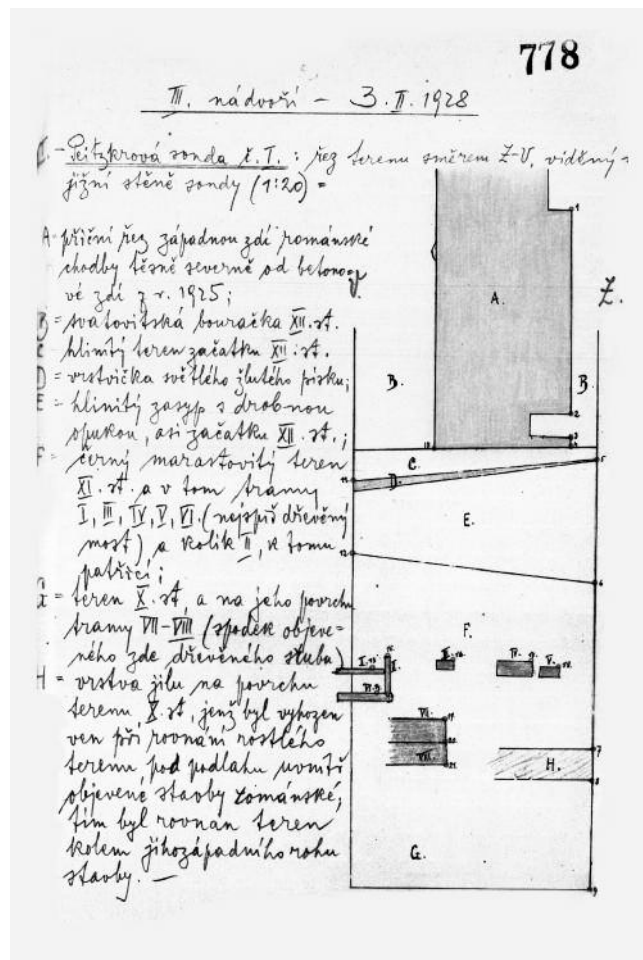 778
III. nádvoří – 3. II. 1928
sonda č. I. : řez terenu směrem Z-V, viděný
jižní stěně sondy (1:20) =
A = příční řez západnou zdí románské
chodby těsně severně od betono-
vé zdi z r. 1925;
B = svatovítská bouračka XII. st.
C hlinitý teren začátku XII. st.
D = vrstvička světlého žlutého písku;
E = hlinitý zásyp s drobnou
opukou, asi začátku XII. st.;
F = černý marastovitý teren
XI. st. a v tom tramy
I, III, IV, V, VI. (nejspíš dřevěný
most) a kolík II, k tomu
patřící;
G = teren X. st, a na jeho povrchu
tramy VII-VIII (spodek objeve-
ného zde dřevěného sluba)
H = vrstva jílu na povrchu
terenu X. st, jenž byl vyhozen
ven při rovnání rostlého
terenu pod podlahu uvnitř
objevené stavby románské;
tím byl rovnán teren
kolem jihozápadního rohu
stavby. —
1
A.
Z.
B.
B
2
3
C.
5
11
D.
E.
6
F.
7
H.
8
G.
9